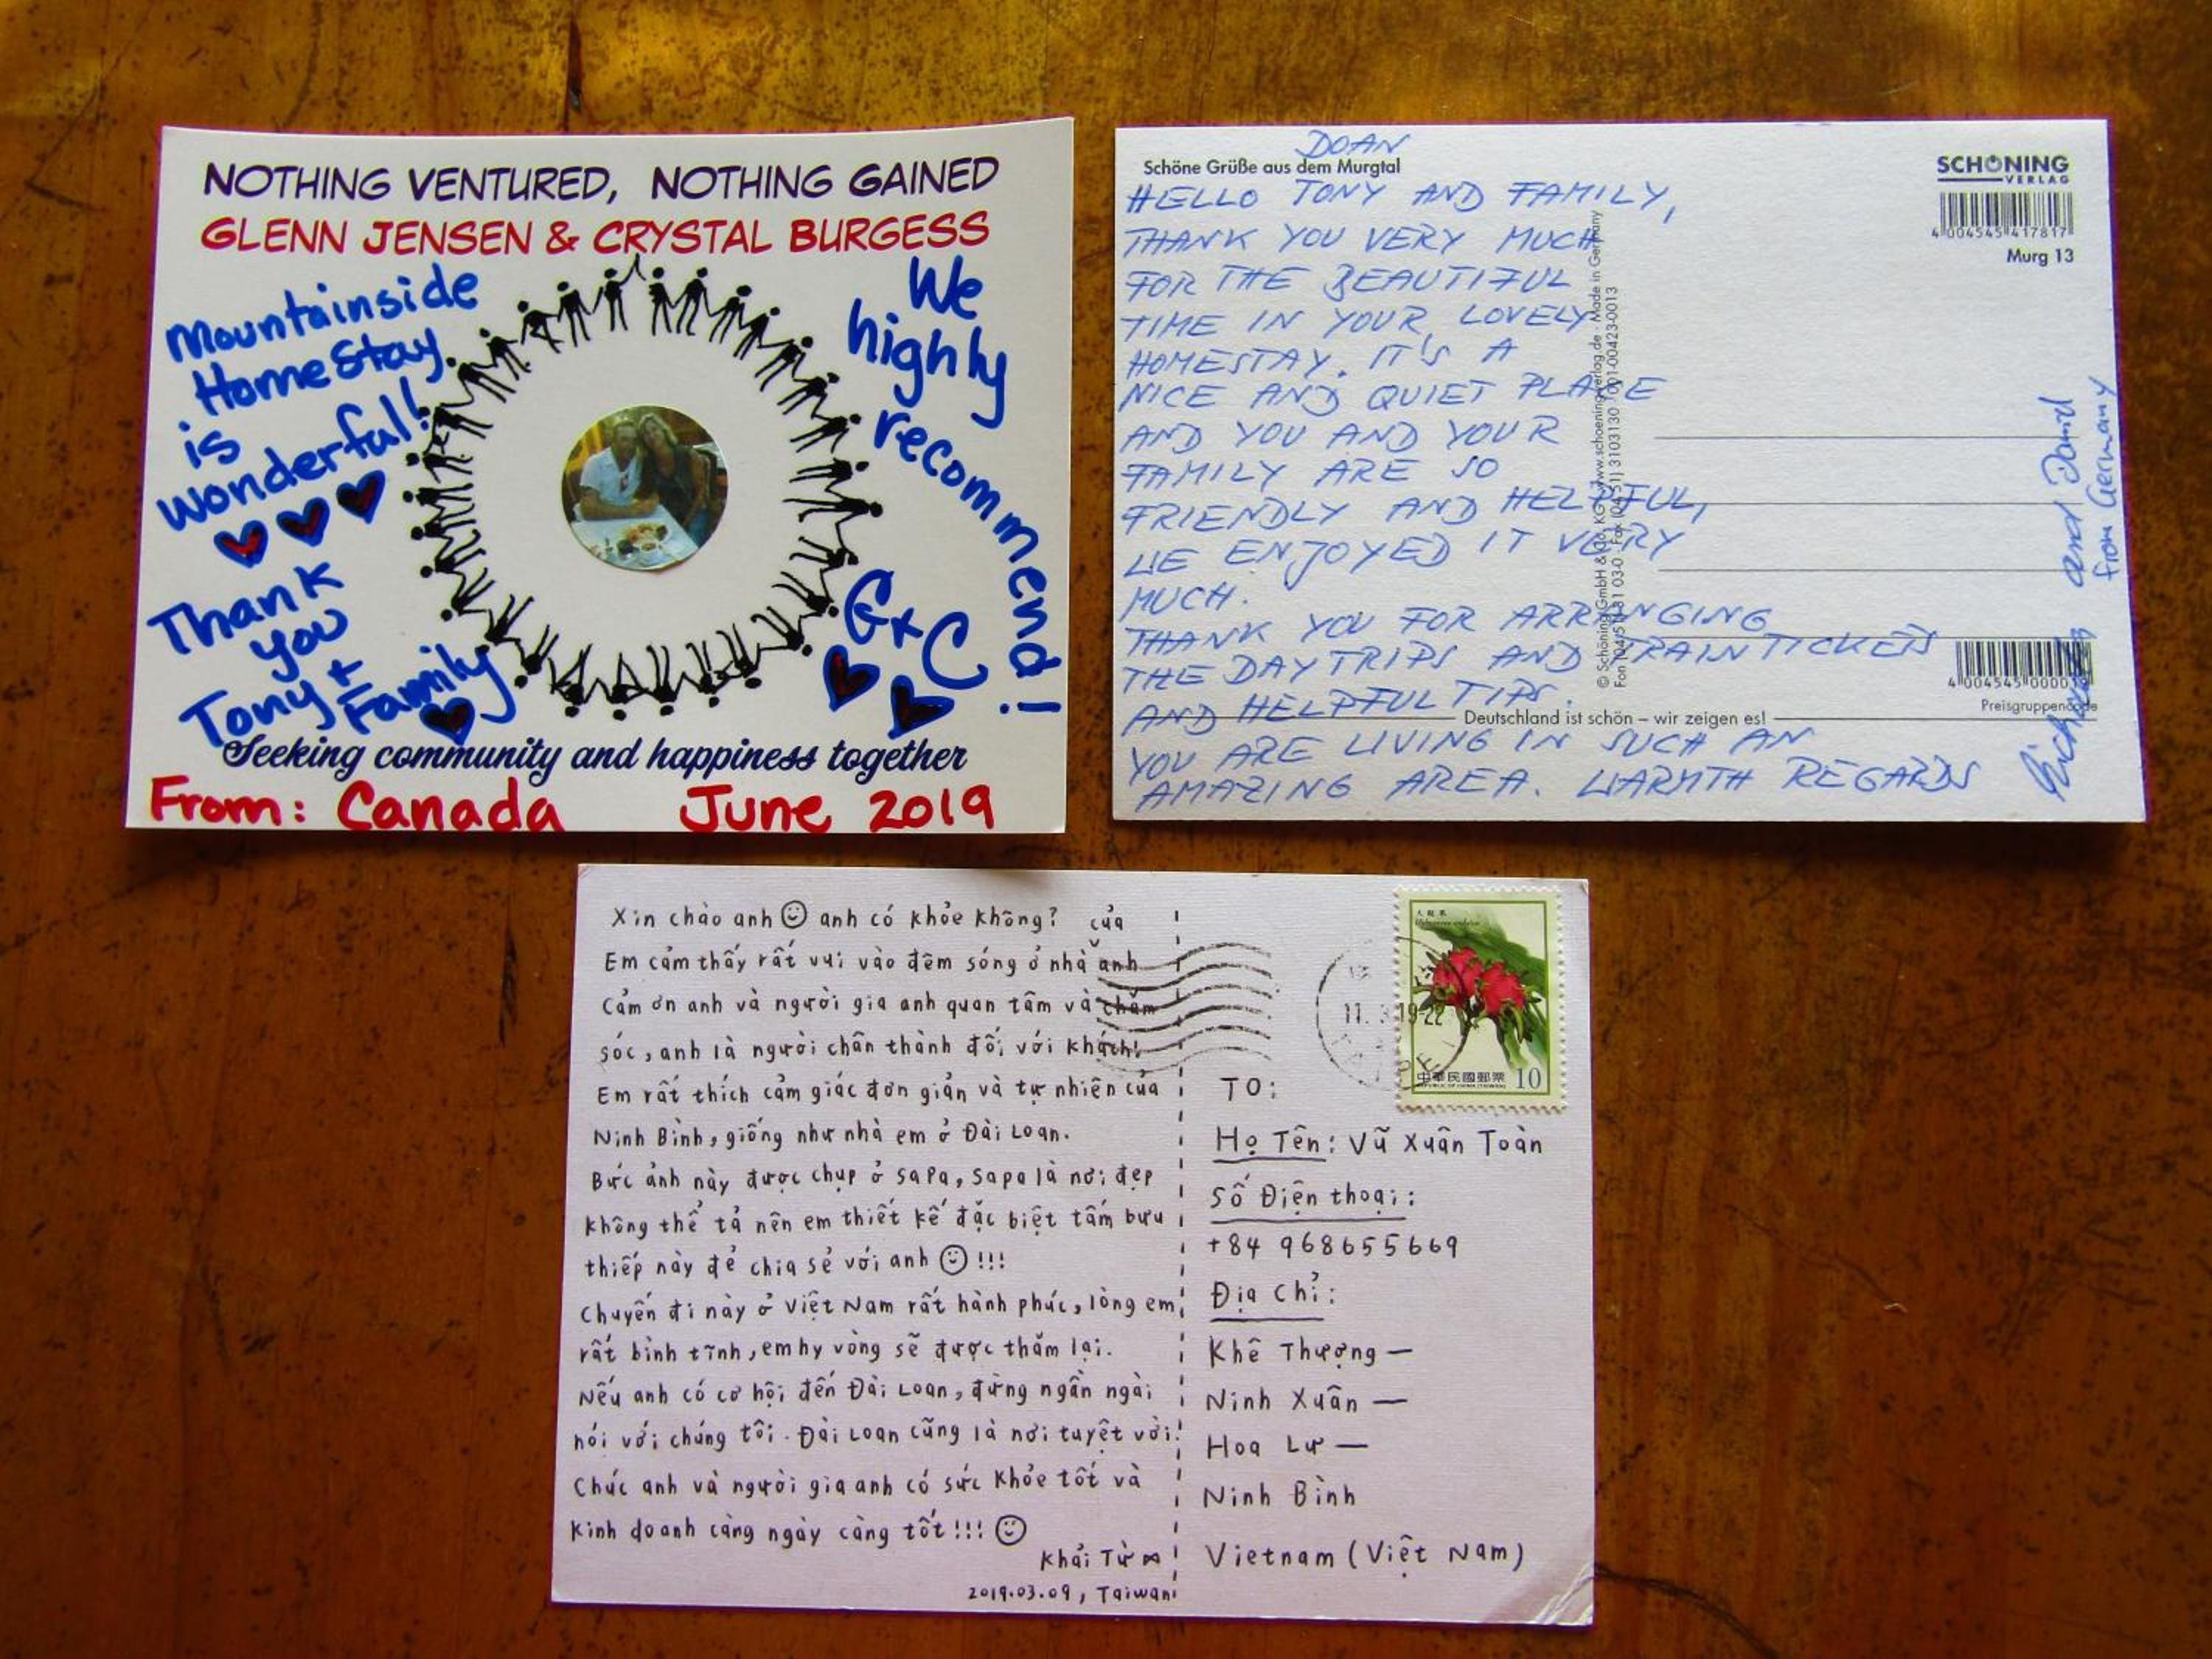 NOTHING VENTURED, NOTHING GAINED
GLENN JENSEN & CRYSTAL BURGESS
Mountainside
HomeStay
is
wonderful!
Thank
you
Tony +
Family
We
highly
recommend!
G+C
Seeking community and happiness together
From: Canada June 2019
DOAN
Schöne Grüße aus dem Murgtal
HELLO TONY AND FAMILY,
THANK YOU VERY MUCH
FOR THE BEAUTIFUL
TIME IN YOUR LOVELY
HOMESTAY. IT'S A
NICE AND QUIET PLACE
AND YOU AND YOUR
FAMILY ARE SO
FRIENDLY AND HELPFUL,
WE ENJOYED IT VERY
MUCH.
THANK YOU FOR ARRANGING
THE DAYTRIPS AND TRAINTICKETS
AND HELPFUL TIPS.
Deutschland ist schön – wir zeigen es!
YOU ARE LIVING IN SUCH AN
AMAZING AREA. WARMTH REGARDS
and David
from Germany
SCHÖNING
VERLAG
4 004545 417817
Murg 13
Preisgruppencode
Xin chào anh anh có khỏe không?
Em cảm thấy rất vui vào đêm sóng ở nhà của anh
Cảm ơn anh và người gia anh quan tâm và chăm
sóc, anh là người chân thành đối với khách!
Em rất thích cảm giác đơn giản và tự nhiên của
Ninh Bình, giống như nhà em ở Đài Loan.
Bức ảnh này được chụp ở SaPa, Sapa là nơi đẹp
không thể tả nên em thiết kế đặc biệt tấm bưu
thiếp này để chia sẻ với anh !!!
Chuyến đi này ở Việt Nam rất hành phúc, lòng em
rất bình tĩnh, em hy vòng sẽ được thăm lại.
Nếu anh có cơ hội đến Đài Loan, đừng ngần ngài
nói với chúng tôi. Đài Loan cũng là nơi tuyệt vời!
Chúc anh và người gia anh có sức khỏe tốt và
kinh doanh càng ngày càng tốt!!!
Khải Từ
2019.03.09, Taiwan
中華民國郵票 10
REPUBLIC OF CHINA (TAIWAN)
TO:
Họ Tên: Vũ Xuân Toàn
Số Điện thoại:
+84 968655669
Địa Chỉ:
Khê Thượng —
Ninh Xuân —
Hoa Lư —
Ninh Bình
Vietnam (Việt Nam)